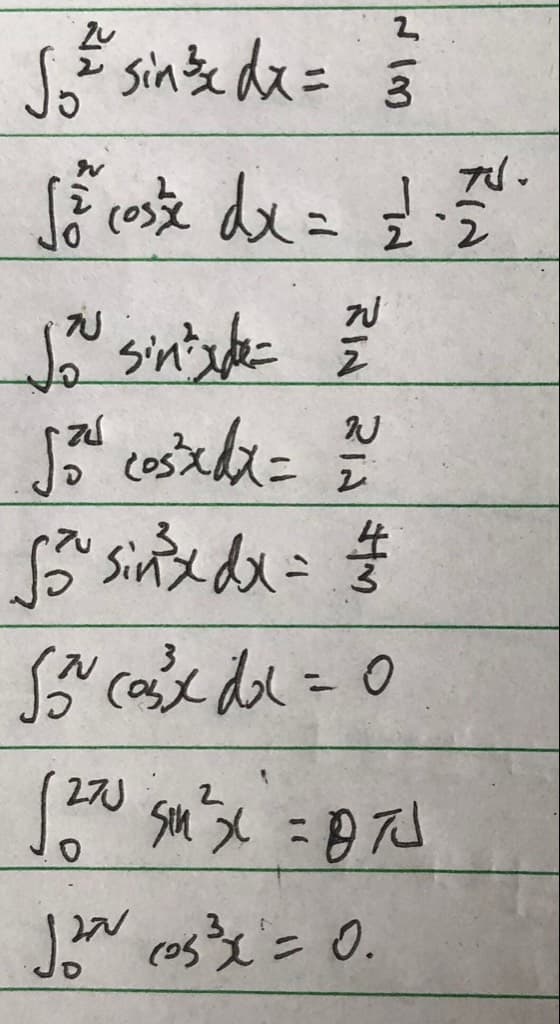 ∫₀^(π/2) sin³x dx = 2/3
∫₀^(π/2) cos²x dx = 1/2 · π/2.
∫₀^π sin²x dx = π/2
∫₀^π cos²x dx = π/2
∫₀^π sin³x dx = 4/3
∫₀^π cos³x dx = 0
∫₀^(2π) sin²x = π
∫₀^(2π) cos³x = 0.